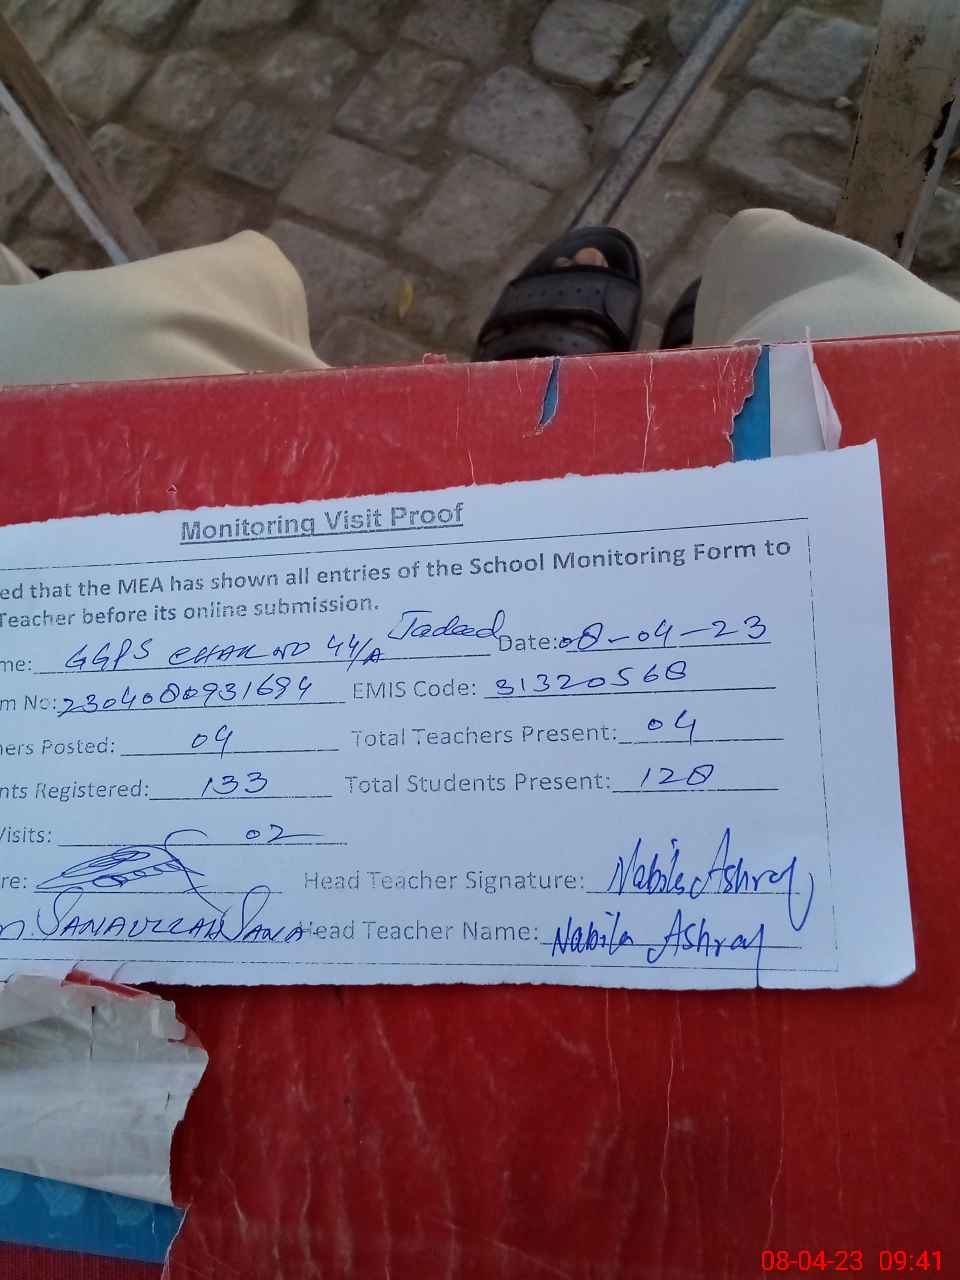 Monitoring Visit Proof
ed that the MEA has shown all entries of the School Monitoring Form to
Teacher before its online submission.
me: GGPS CHAK NO 44/A Jadeed Date: 08-04-23
m No: 2304080931694 EMIS Code: 31320568
ers Posted: 04 Total Teachers Present: 04
nts Registered: 133 Total Students Present: 128
Visits: 02
re: Head Teacher Signature: Nabila Ashraf
m. SANAULLAH SANA Head Teacher Name: Nabila Ashraf
08-04-23 09:41